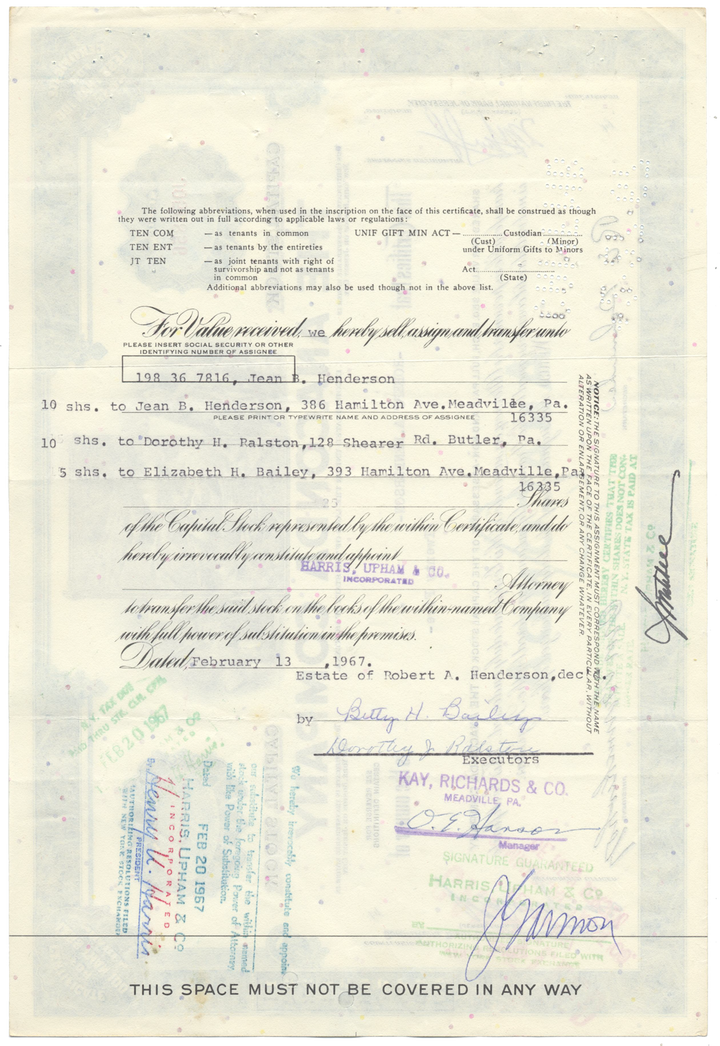 The following abbreviations, when used in the inscription on the face of this certificate, shall be construed as though
they were written out in full according to applicable laws or regulations:
TEN COM — as tenants in common
TEN ENT — as tenants by the entireties
JT TEN — as joint tenants with right of
survivorship and not as tenants
in common
UNIF GIFT MIN ACT — Custodian
(Cust) (Minor)
under Uniform Gifts to Minors
Act
(State)
Additional abbreviations may also be used though not in the above list.
For Value received, we hereby sell, assign and transfer unto
PLEASE INSERT SOCIAL SECURITY OR OTHER
IDENTIFYING NUMBER OF ASSIGNEE
198 36 7816, Jean B. Henderson
10 shs. to Jean B. Henderson, 386 Hamilton Ave.Meadville, Pa.
PLEASE PRINT OR TYPEWRITE NAME AND ADDRESS OF ASSIGNEE 16335
10 shs. to Dorothy H. Ralston,128 Shearer Rd. Butler, Pa.
5 shs. to Elizabeth H. Bailey, 393 Hamilton Ave.Meadville,Pa
16335
25 Shares
of the Capital Stock represented by the within Certificate, and do
hereby irrevocably constitute and appoint
HARRIS, UPHAM & CO.
INCORPORATED
Attorney
to transfer the said stock on the books of the within-named Company
with full power of substitution in the premises.
Dated, February 13 ,1967.
Estate of Robert A. Henderson,dec
by Betty H. Bailey
Dorothy J. Ralston
Executors
KAY, RICHARDS & CO.
MEADVILLE, PA.
Manager
SIGNATURE GUARANTEED
HARRIS, UPHAM & CO
INCORPORATED
AUTHORIZING RESOLUTIONS FILED WITH
NOTICE: THE SIGNATURE TO THIS ASSIGNMENT MUST CORRESPOND WITH THE NAME
AS WRITTEN UPON THE FACE OF THE CERTIFICATE, IN EVERY PARTICULAR, WITHOUT
ALTERATION OR ENLARGEMENT, OR ANY CHANGE WHATEVER.
N.Y. STATE TAX IS PAID AT
N.Y. TAX DUE
FEB 20 1967
We hereby irrevocably constitute and appoint
our substitute to transfer the within named
stock under the foregoing Power of Attorney,
with like Power of Substitution.
Dated FEB 20 1967
HARRIS, UPHAM & CO
INCORPORATED
By Henry U. Harris
PRESIDENT
AUTHORIZING RESOLUTIONS FILED
WITH NEW YORK STOCK EXCHANGE
THIS SPACE MUST NOT BE COVERED IN ANY WAY